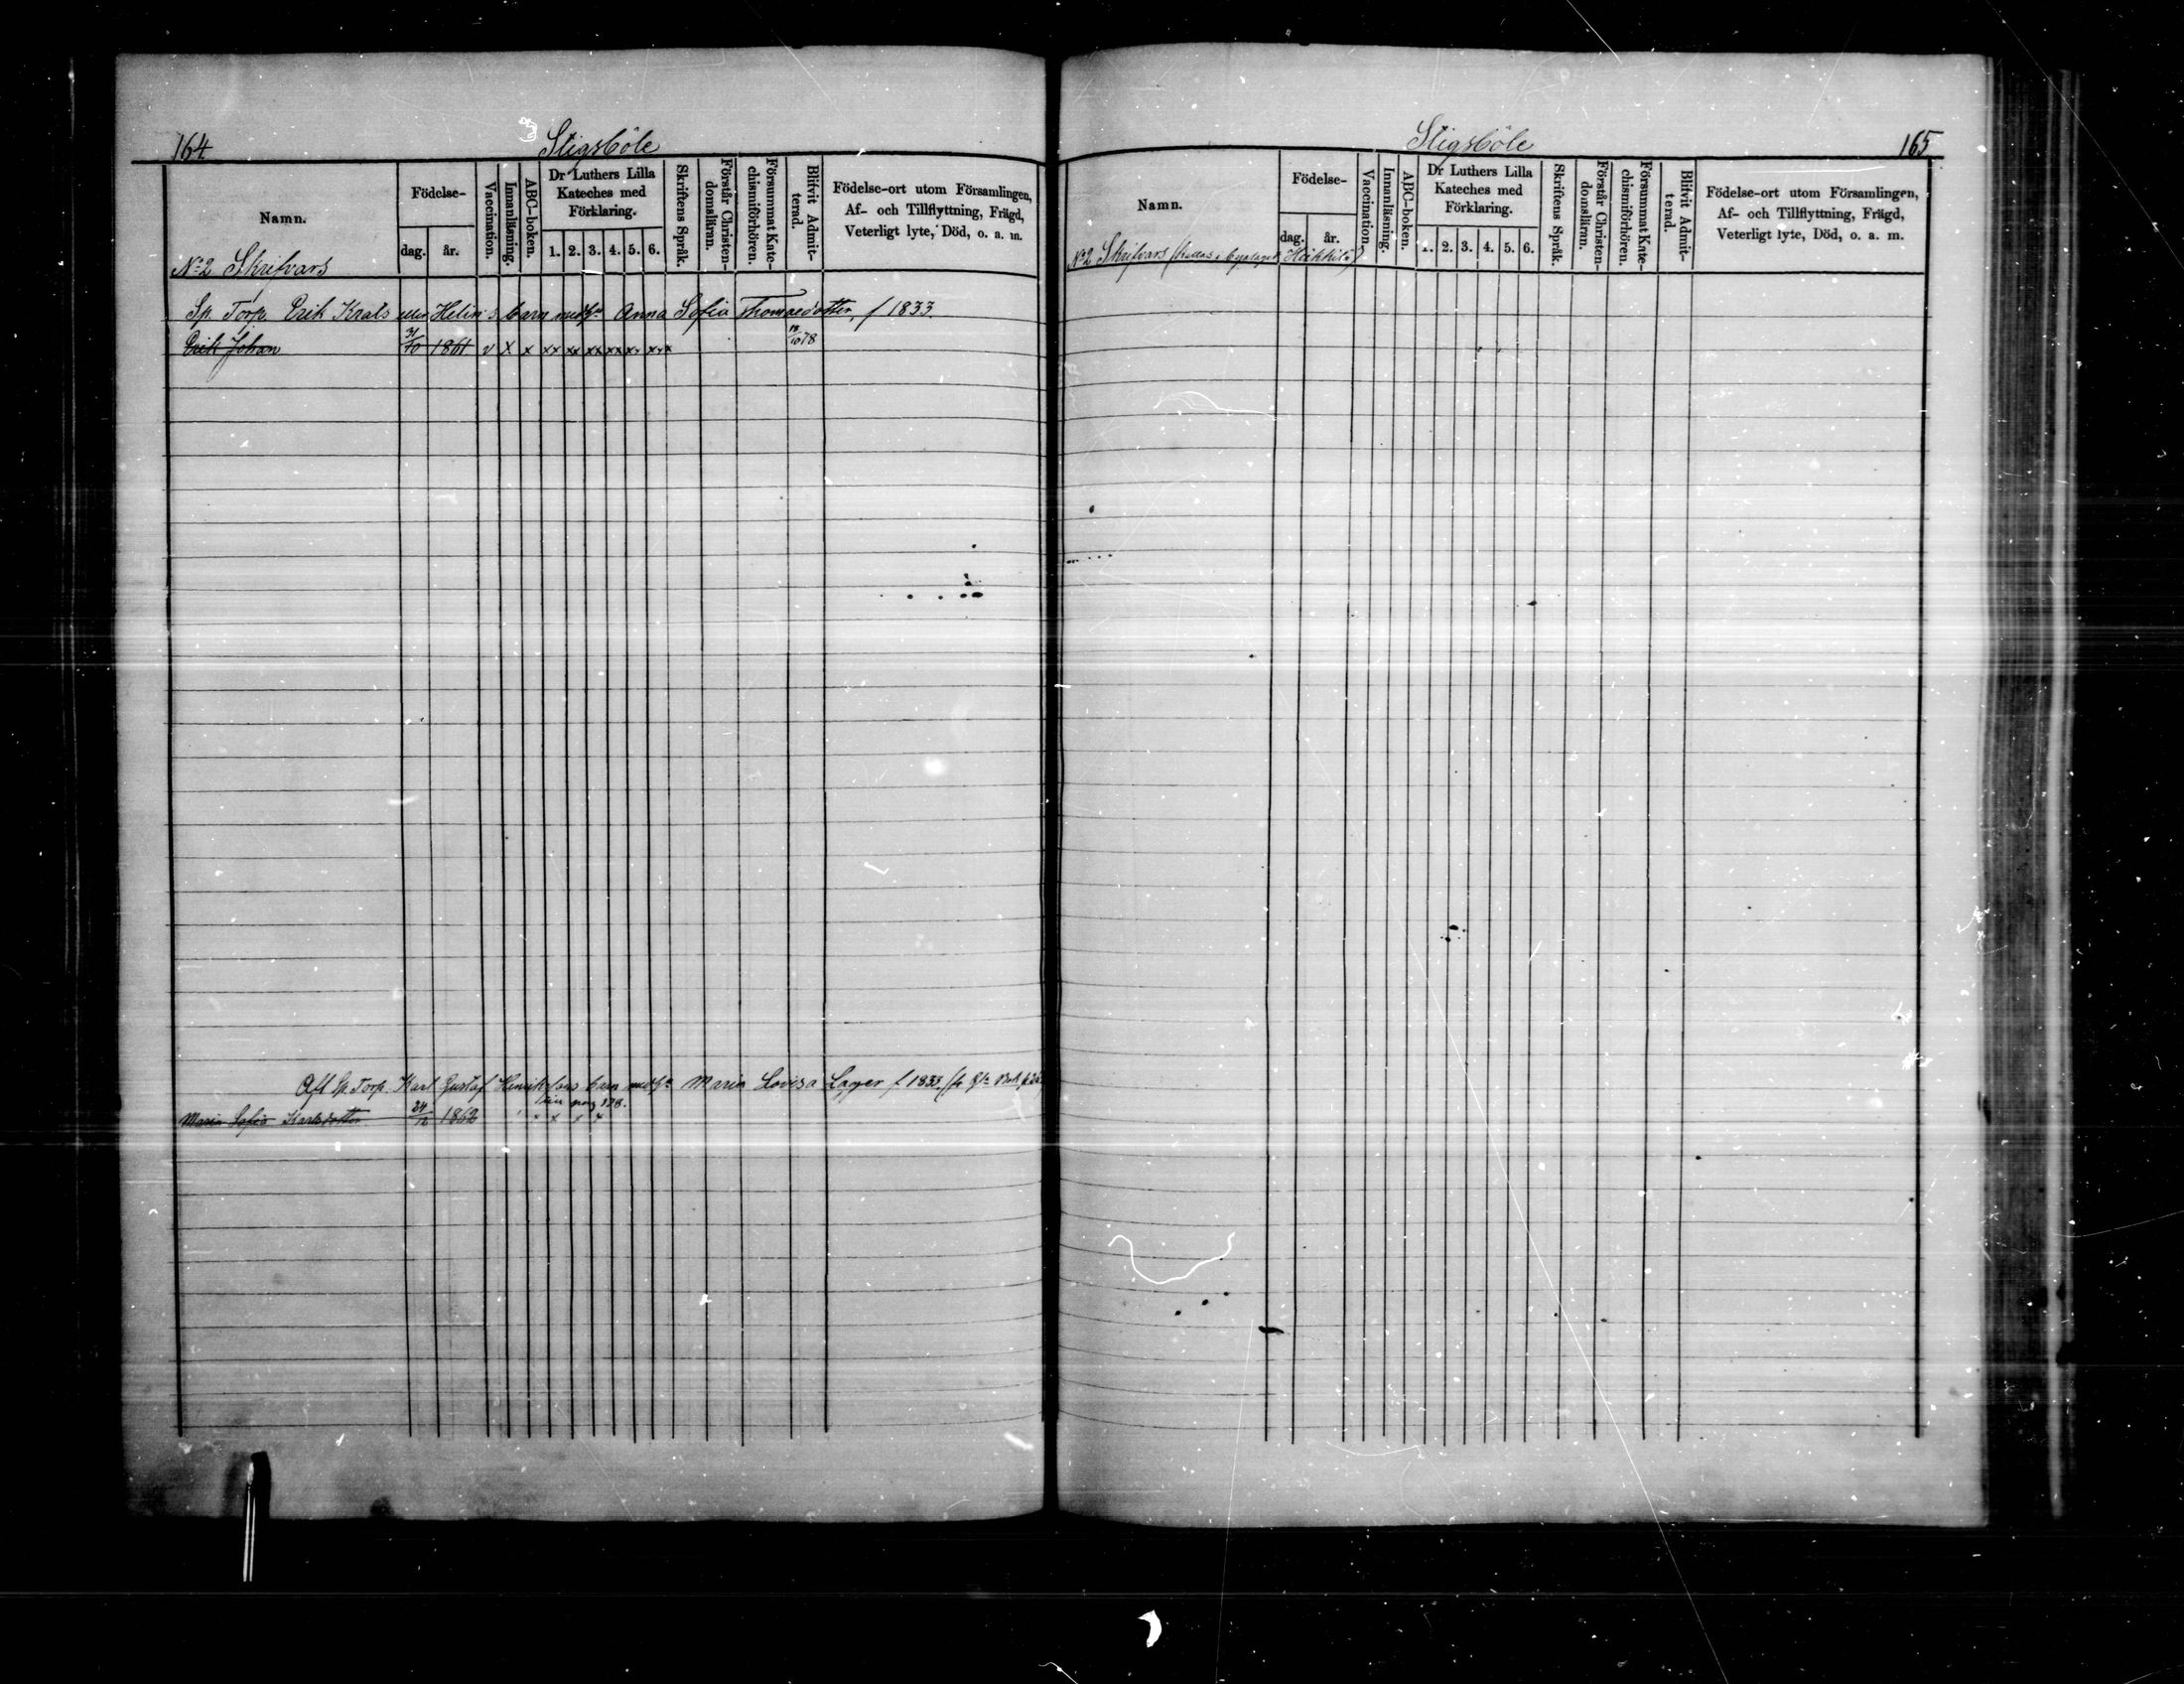 164
Stigsböle
Namn.
Födelse-
dag.
år.
Vaccination.
Innanläsning.
ABC-boken.
Dr Luthers Lilla
Kateches med
Förklaring.
1. 2. 3. 4. 5. 6.
Skriftens Språk.
Förstår Christen-
domsläran.
Försummat Kate-
chismiförhören.
Blifvit Admit-
terad.
Födelse-ort utom Församlingen,
Af- och Tillflyttning, Frägd,
Veterligt lyte, Död, o. a. m.
No 2 Skrifvars
Sp. Torp. Erik Krals Helin's barn med Anna Sofia Thomasdotter, f 1833.
Erik Johan 1861 v x x xx xx xx xx x. x.x
Aft Sp. Torp. Karl Gustaf barn med Maria Lovisa Lager f 1833
Maria Sofia Karlsdotter 24/12 1862
165
Stigsböle
Namn.
Födelse-
dag.
år.
Vaccination.
Innanläsning.
ABC-boken.
Dr Luthers Lilla
Kateches med
Förklaring.
1. 2. 3. 4. 5. 6.
Skriftens Språk.
Förstår Christen-
domsläran.
Försummat Kate-
chismiförhören.
Blifvit Admit-
terad.
Födelse-ort utom Församlingen,
Af- och Tillflyttning, Frägd,
Veterligt lyte, Död, o. a. m.
No 2 Skrifvars (kallas i byalaget Heikkilä)